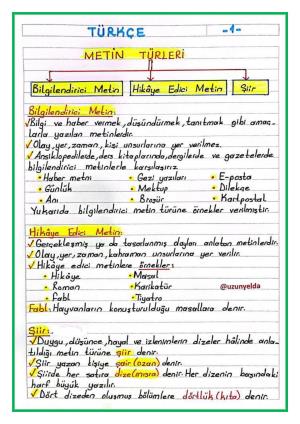 TÜRKÇE -1-
METİN TÜRLERİ
Bilgilendirici Metin Hikâye Edici Metin Şiir
Bilgilendirici Metin:
✓Bilgi ve haber vermek, düşündürmek, tanıtmak gibi amaç-
larla yazılan metinlerdir.
✓Olay, yer, zaman, kişi unsurlarına yer verilmez.
✓Ansiklopedilerde, ders kitaplarında, dergilerde ve gazetelerde
bilgilendirici metinlerle karşılaşırız.
• Haber metni • Gezi yazıları • E-posta
• Günlük • Mektup • Dilekçe
• Anı • Broşür • Kartpostal
Yukarıda bilgilendirici metin türüne örnekler verilmiştir.
Hikâye Edici Metin:
✓Gerçekleşmiş ya da tasarlanmış olayları anlatan metinlerdir.
✓Olay, yer, zaman, kahraman unsurlarına yer verilir.
✓Hikâye edici metinlere örnekler:
• Hikâye • Masal
• Roman • Karikatür @uzunyelda
• fabl • Tiyatro
Fabl: Hayvanların konuşturulduğu masallara denir.
Şiir:
✓Duygu, düşünce, hayal ve izlenimlerin dizeler hâlinde anla-
tıldığı metin türüne şiir denir.
✓Şiir yazan kişiye şair (ozan) denir.
✓Şiirde her satıra dize (mısra) denir. Her dizenin başındaki
harf büyük yazılır.
✓Dört dizeden oluşmuş bölümlere dörtlük (kıta) denir.